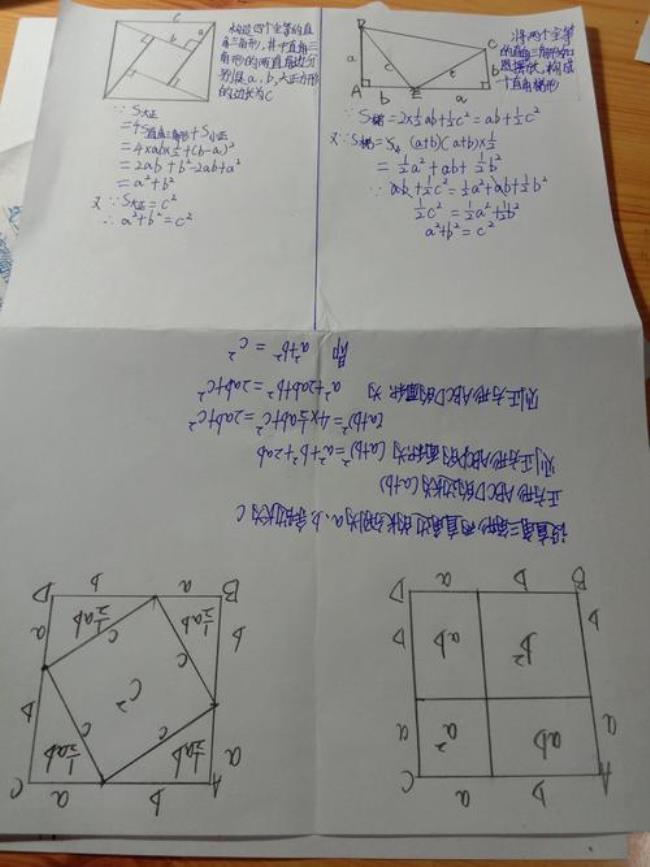 c
b
a
构造四个全等的直
角三角形,其中直角三
角形的两直角边分
别是a、b,大正方形
的边长为c
∵ S大正
=4S直角三角形+S小正
=4×ab×½+(b-a)²
=2ab+b²-2ab+a²
=a²+b²
又∵S大正=c²
∴a²+b²=c²
a
c
c
C
b
A
b
E
a
将两个全等
的直角三角形如
图摆放,构成
一个直角梯形
∵S梯=2×½ab+½c²=ab+½c²
又∵S梯= (a+b)(a+b)×½
=½a²+ab+½b²
∵ab+½c²=½a²+ab+½b²
½c²=½a²+½b²
a²+b²=c²
设直角三角形两直角边的长分别为a、b,斜边长为c
正方形ABCD的边长为(a+b)
则正方形ABCD的面积为(a+b)²=a²+b²+2ab
(a+b)²=4×½ab+c²=2ab+c²
则正方形ABCD的面积为 a²+2ab+b²=2ab+c²
即 a²+b²=c²
A
b
a
C
a
ab
a²
a
b
b²
ab
b
B
b
a
D
A
b
a
C
a
½ab
½ab
b
c
c
c²
b
c
c
a
½ab
½ab
B
a
b
D